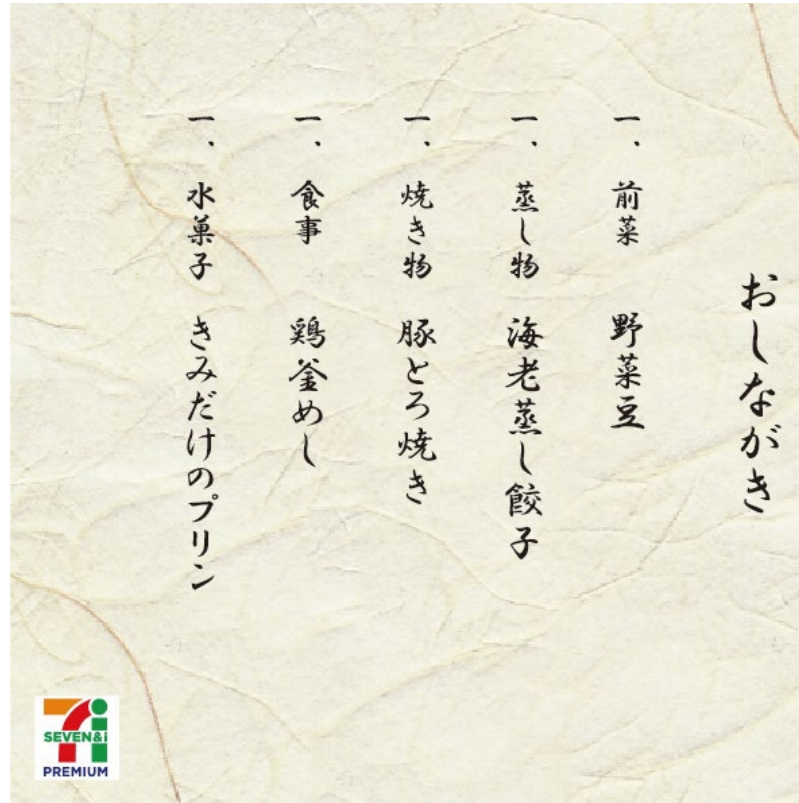 おしながき
一、前菜　野菜豆
一、蒸し物　海老蒸し餃子
一、焼き物　豚とろ焼き
一、食事　鶏釜めし
一、水菓子　きみだけのプリン
SEVEN&i
PREMIUM